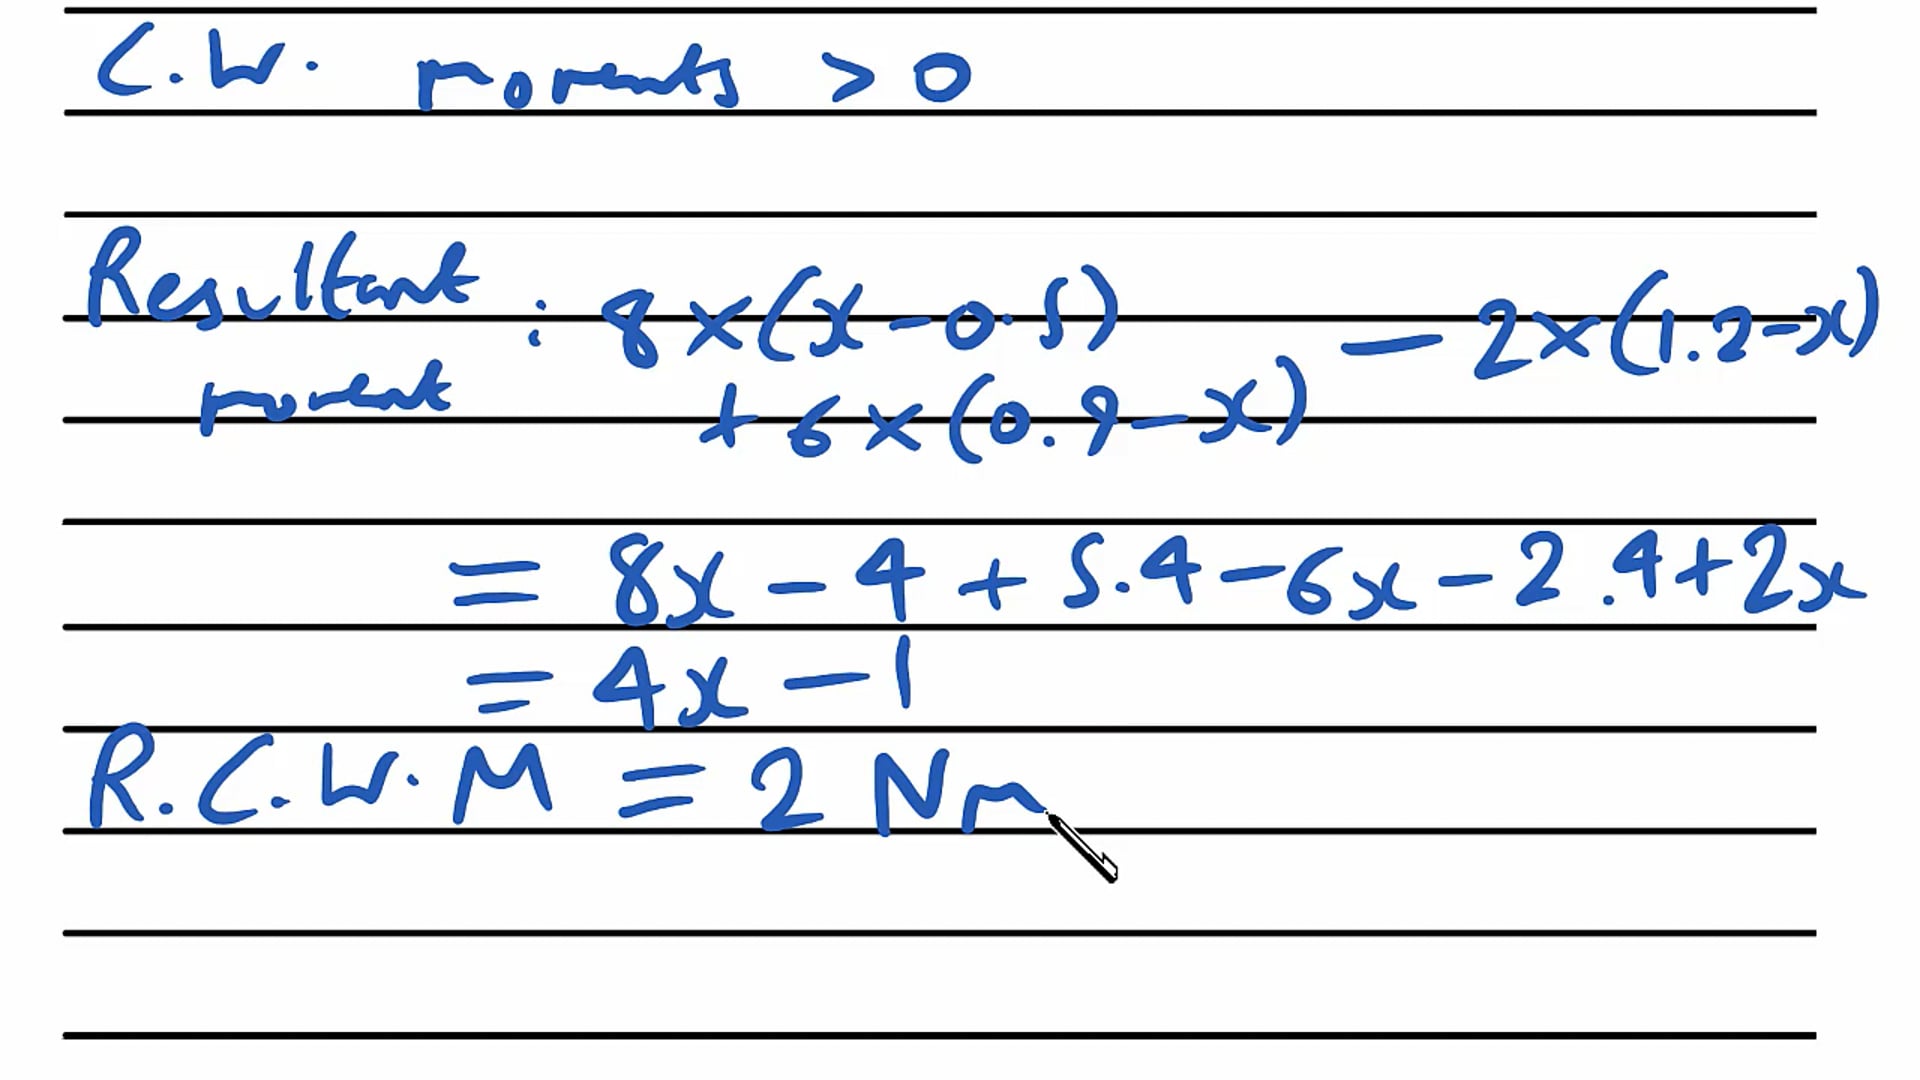 C.W. moments > 0
Resultant : 8×(x-0.5) - 2×(1.2-x)
moment + 6×(0.9-x)
= 8x - 4 + 5.4 - 6x - 2.4 + 2x
= 4x - 1
R.C.W.M = 2 Nm